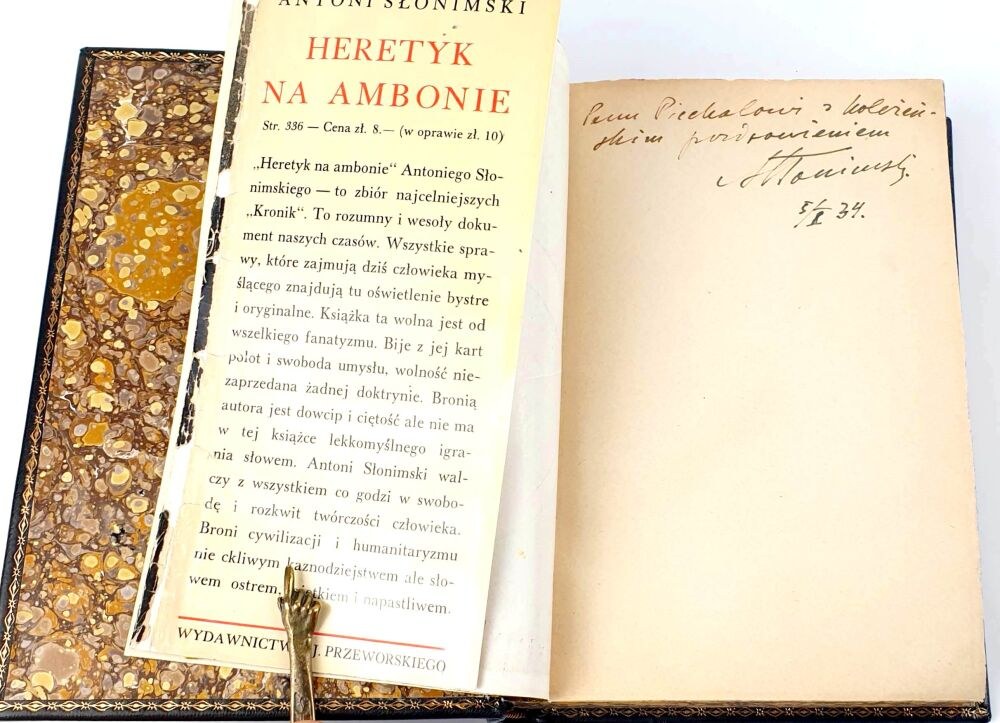 ANTONI SŁONIMSKI
HERETYK
NA AMBONIE
Str. 336 — Cena zł. 8.— (w oprawie zł. 10)
„Heretyk na ambonie“ Antoniego Sło-
nimskiego — to zbiór najcelniejszych
„Kronik“. To rozumny i wesoły doku-
ment naszych czasów. Wszystkie spra-
wy, które zajmują dziś człowieka my-
ślącego znajdują tu oświetlenie bystre
i oryginalne. Książka ta wolna jest od
wszelkiego fanatyzmu. Bije z jej kart
polot i swoboda umysłu, wolność nie-
zaprzedana żadnej doktrynie. Bronią
autora jest dowcip i ciętość ale nie ma
w tej książce lekkomyślnego igra-
nia słowem. Antoni Słonimski wal-
czy z wszystkiem co godzi w swobo-
dę i rozkwit twórczości człowieka.
Broni cywilizacji i humanitaryzmu
nie ckliwym kaznodziejstwem ale sło-
wem ostrem, i napastliwem.
WYDAWNICTWO J. PRZEWORSKIEGO
Panu Piechalowi z koleżeń-
skim pozdrowieniem
ASłonimski
34.